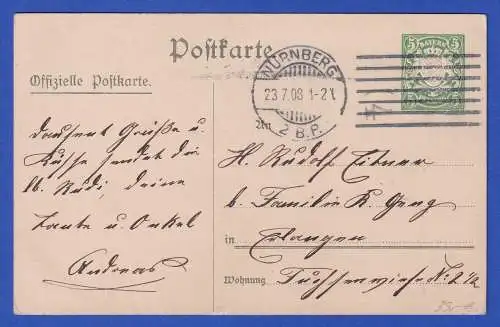 Postkarte
Offizielle Postkarte.
NÜRNBERG
23.7.08 1-2 N.
2 B.P.
5 BAYERN 5
Tausend Grüße u.
Küsse sendet dir
lb. Rudi, deine
Tante u. Onkel
Andreas
An
H. Rudolf Eitner
b. Familie K. Geng
in Erlangen
Wohnung Fuchsenwiese No. 2 1/2